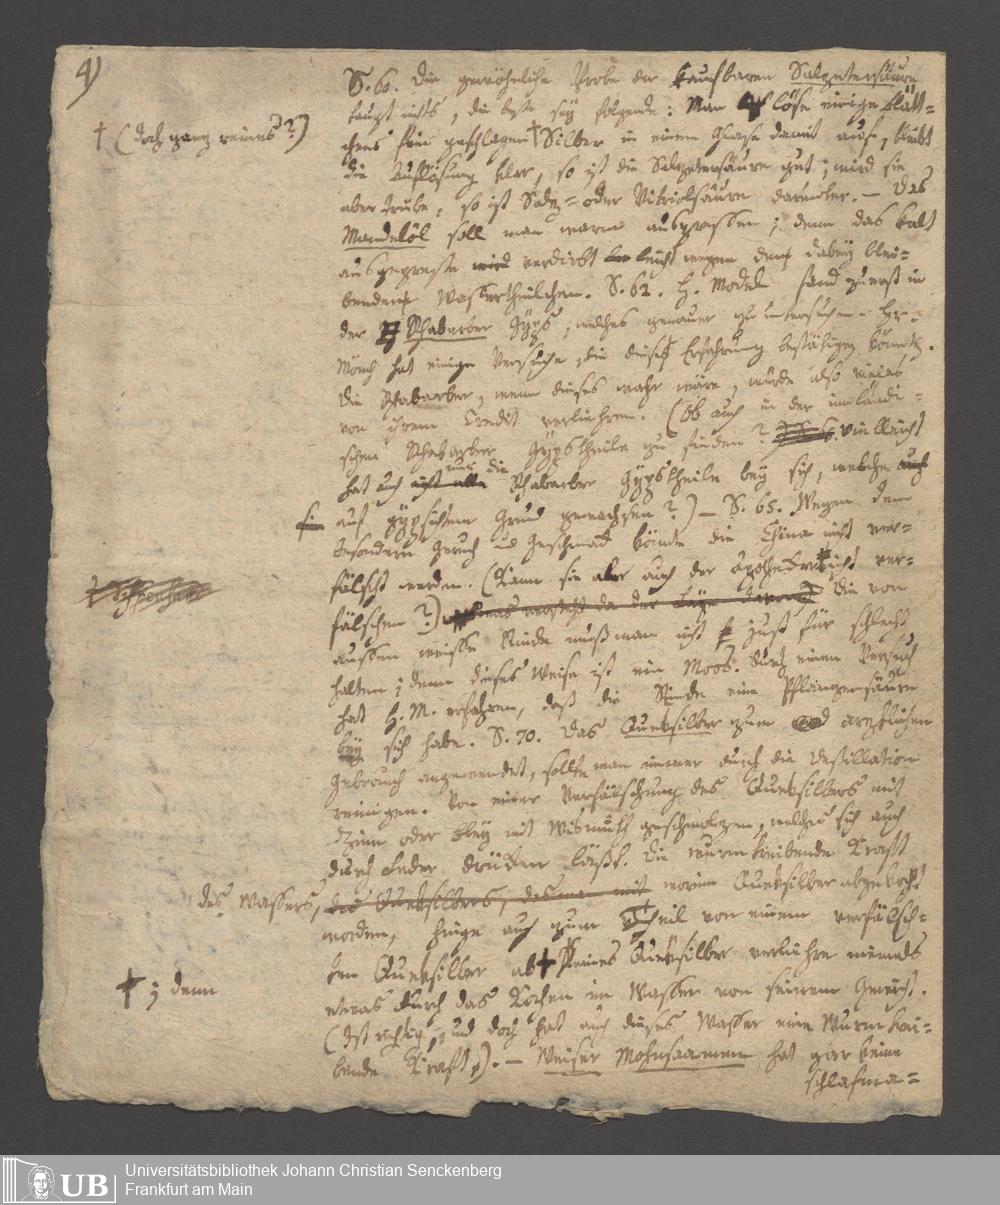 4)
S. 60. Die gewöhnliche Probe der kaufbaren Salpetersäure
taugt nichts, die beste sey folgende: Man löse einige Blätt-
† (doch ganz reines?)
chens fein geschlagen † Silber in einem Glase damit auf, bleibt
die Auflösung klar, so ist die Salpetersäure gut; wird sie
aber trübe, so ist Salz= oder Vitriolsäure darunter. — Das
Mandelöl soll man warm auspressen; denn das kalt
ausgepreßte verdirbt leicht wegen dem dabey blei-
bendem Wassertheilchen. S. 62. H. Model fand zuerst in
der Rhabarber Gyps, welches genauer zu untersuchen. Hr.
Mönch hat einige Versuche, die diese Erfahrung bestätigen könnte.
Die Rhabarber, wenn dieses wahr wäre, würde also vieles
von ihrem Credit verliehren. (Ob auch in der inländi-
schen Rhabarber Gypstheile zu finden? vielleicht
hat nur die Rhabarber Gypstheile bey sich, welche
auf gypsichtem Grund gewachsen?) — S. 65. Wegen dem
besondern Geruch und Geschmack könnte die China nicht ver-
fälscht werden. (Kann sie aber auch der Apotheker nicht ver-
fälschen?) Die von
aussen weisse Rinde muß man nicht just für schlecht
halten; denn dieses Weise ist ein Moos. Durch einen Versuch
hat H. M. erfahren, daß die Rinde eine Pflanzensäure
bey sich habe. S. 70. Das Queksilber zum arztlichen
Gebrauch angewendet, sollte man immer durch die Destillation
reinigen. Von einer Verfälschung des Queksilbers mit
Zinn oder Bley mit Wismuth geschmolzen, welches sich auch
durch Leder drücken läßt. Die wurmtreibende Kraft
des Wassers, worinn Queksilber abgekocht
worden, hinge auch zum Theil von einem verfälsch-
ten Queksilber ab † Reines Queksilber verliehre niemals
† ; denn
etwas durch das Kochen im Wasser von seinem Gewicht.
(Ist richtig, und doch hat auch dieses Wasser eine Wurmtrei-
bende Kraft). — Weiser Mohnsaamen hat gar keine
schlafma=
Universitätsbibliothek Johann Christian Senckenberg
Frankfurt am Main
UB